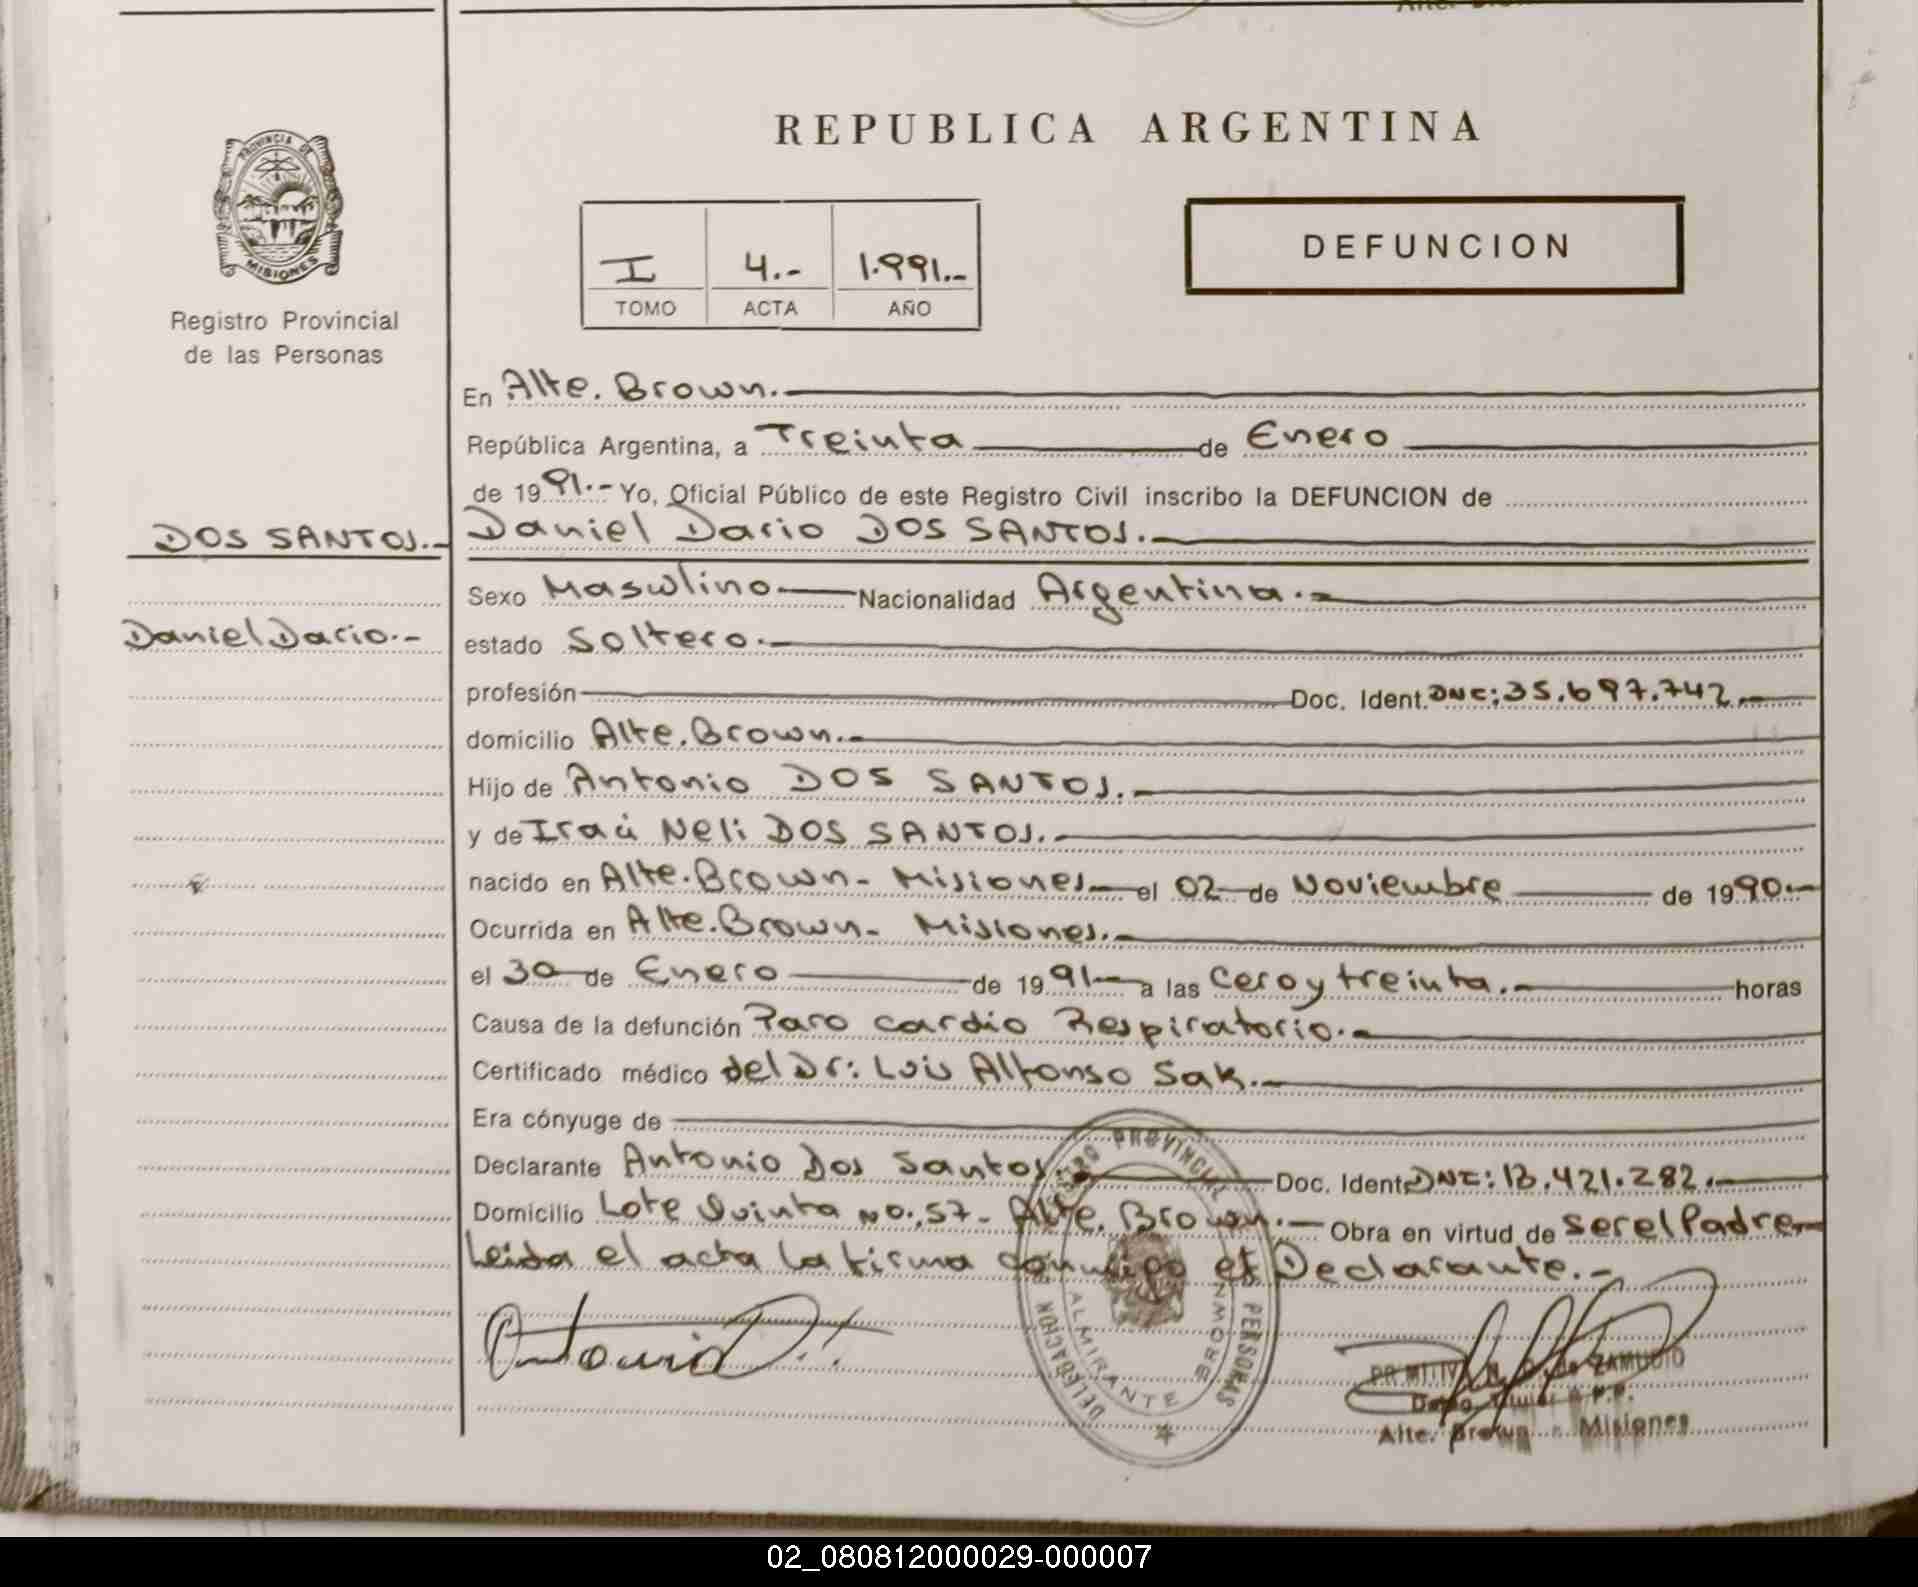 REPUBLICA ARGENTINA
PROVINCIA DE
MISIONES
Registro Provincial
de las Personas
I 4.- 1.991.-
TOMO ACTA AÑO
DEFUNCION
En Alte. Brown.-
República Argentina, a Treinta de Enero
de 1991.- Yo, Oficial Público de este Registro Civil inscribo la DEFUNCION de
DOS SANTOS.- Daniel Dario DOS SANTOS.-
Sexo Masculino Nacionalidad Argentina.-
Daniel Dario.- estado Soltero.-
profesión Doc. Ident. DNI: 35.697.742.-
domicilio Alte. Brown.-
Hijo de Antonio DOS SANTOS.-
y de Neli DOS SANTOS.-
nacido en Alte. Brown - Misiones el 02 de Noviembre de 1990.-
Ocurrida en Alte. Brown - Misiones.-
el 30 de Enero de 1991 a las Cero y treinta.- horas
Causa de la defunción Paro cardio Respiratorio.-
Certificado médico del Dr: Luis Alfonso Sak.-
Era cónyuge de
Declarante Antonio Dos Santos.- Doc. Ident. DNI: 13.421.282.-
Domicilio Lote Quinta No. 57 - Alte. Brown.- Obra en virtud de ser el Padre.-
Leida el acta la firma conmigo el Declarante.-
Antonio D. S.
PROVINCIAL
PERSONAS
DELEGACION
ALMIRANTE BROWN
ZAMUDIO
Alte. Brown - Misiones
02_080812000029-000007